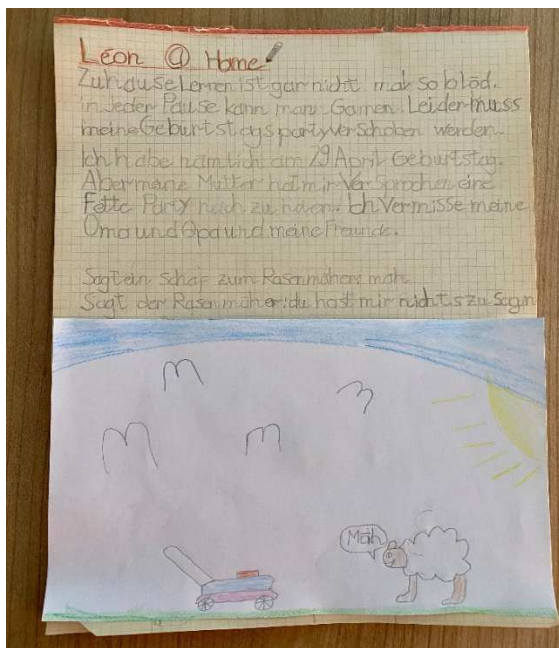 Léon @ Home
Zuhause Lernen ist gar nicht mal so blöd.
in Jeder Pause kann mann Gamen. Leider muss
meine Geburtstagsparty verschoben werden.
Ich habe nämlich am 29 April Geburtstag.
Aber meine Mutter hat mir Versprochen eine
Fette Party nach zu holen. Ich Vermisse meine
Oma und Opa und meine Freunde.
Sagt ein Schaf zum Rasenmäher: mäh
Sagt der Rasenmäher: du hast mir nichts zu Sagen
Mäh